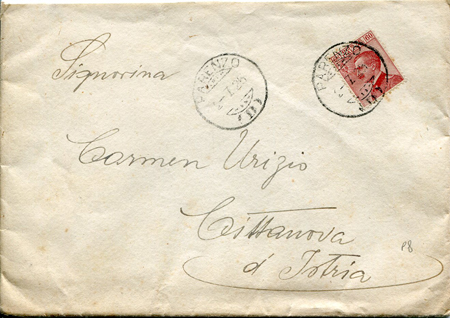 PARENZO
PARENZO
Signorina
Carmen Urizio
Cittanova
d'Istria